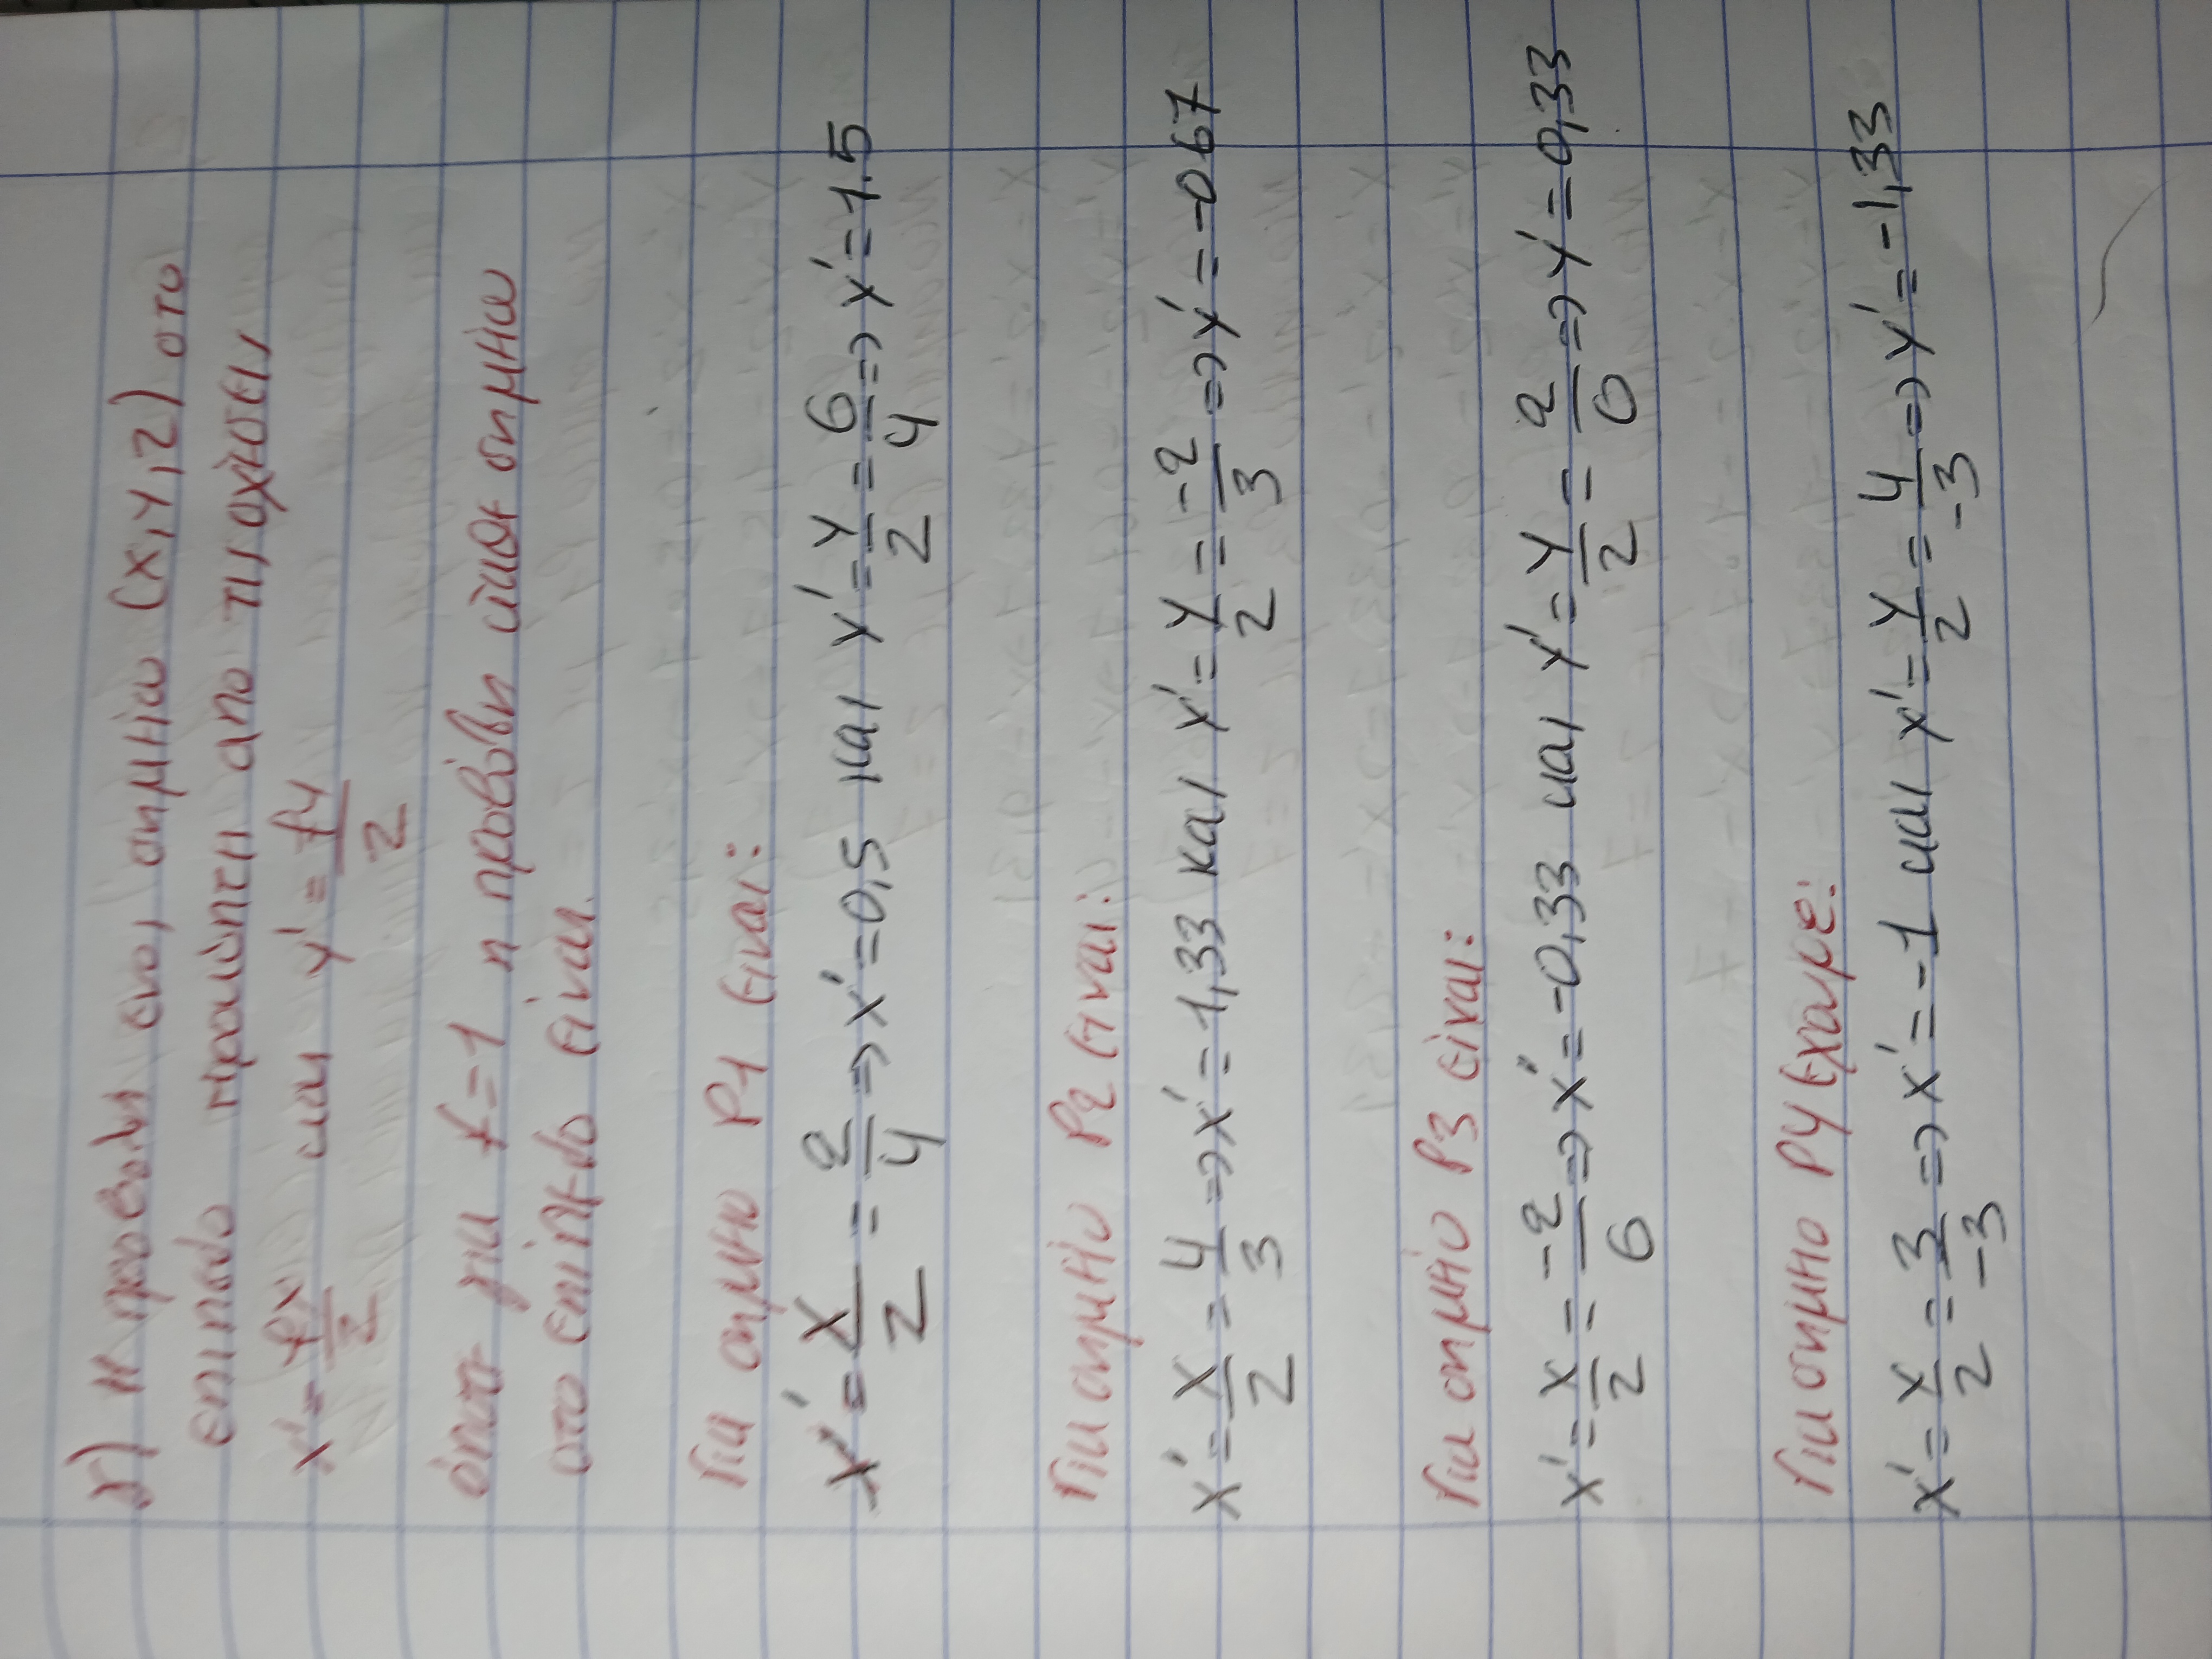 γ) Η προβολή ενός σημείου (X,Y,Z) στο
επίπεδο προκύπτει από τις σχέσεις
x' = fx/z και y' = fy/z
όποτε για f=1 η προβολή κάθε σημείου
στο επίπεδο είναι.
Για σημείο P1 είναι:
x' = x/z = 2/4 => x' = 0,5 και y' = y/z = 6/4 => y' = 1.5
Για σημείο P2 είναι:
x' = x/z = 4/3 => x' = 1,33 και y' = y/z = -2/3 => y' = -067
Για σημείο P3 είναι:
x' = x/z = -2/6 => x' = -0,33 και y' = y/z = 2/6 => y' = 0,33
Για σημείο P4 έχουμε:
x' = x/z = 3/-3 => x' = -1 και y' = y/z = 4/-3 => y' = -1,33